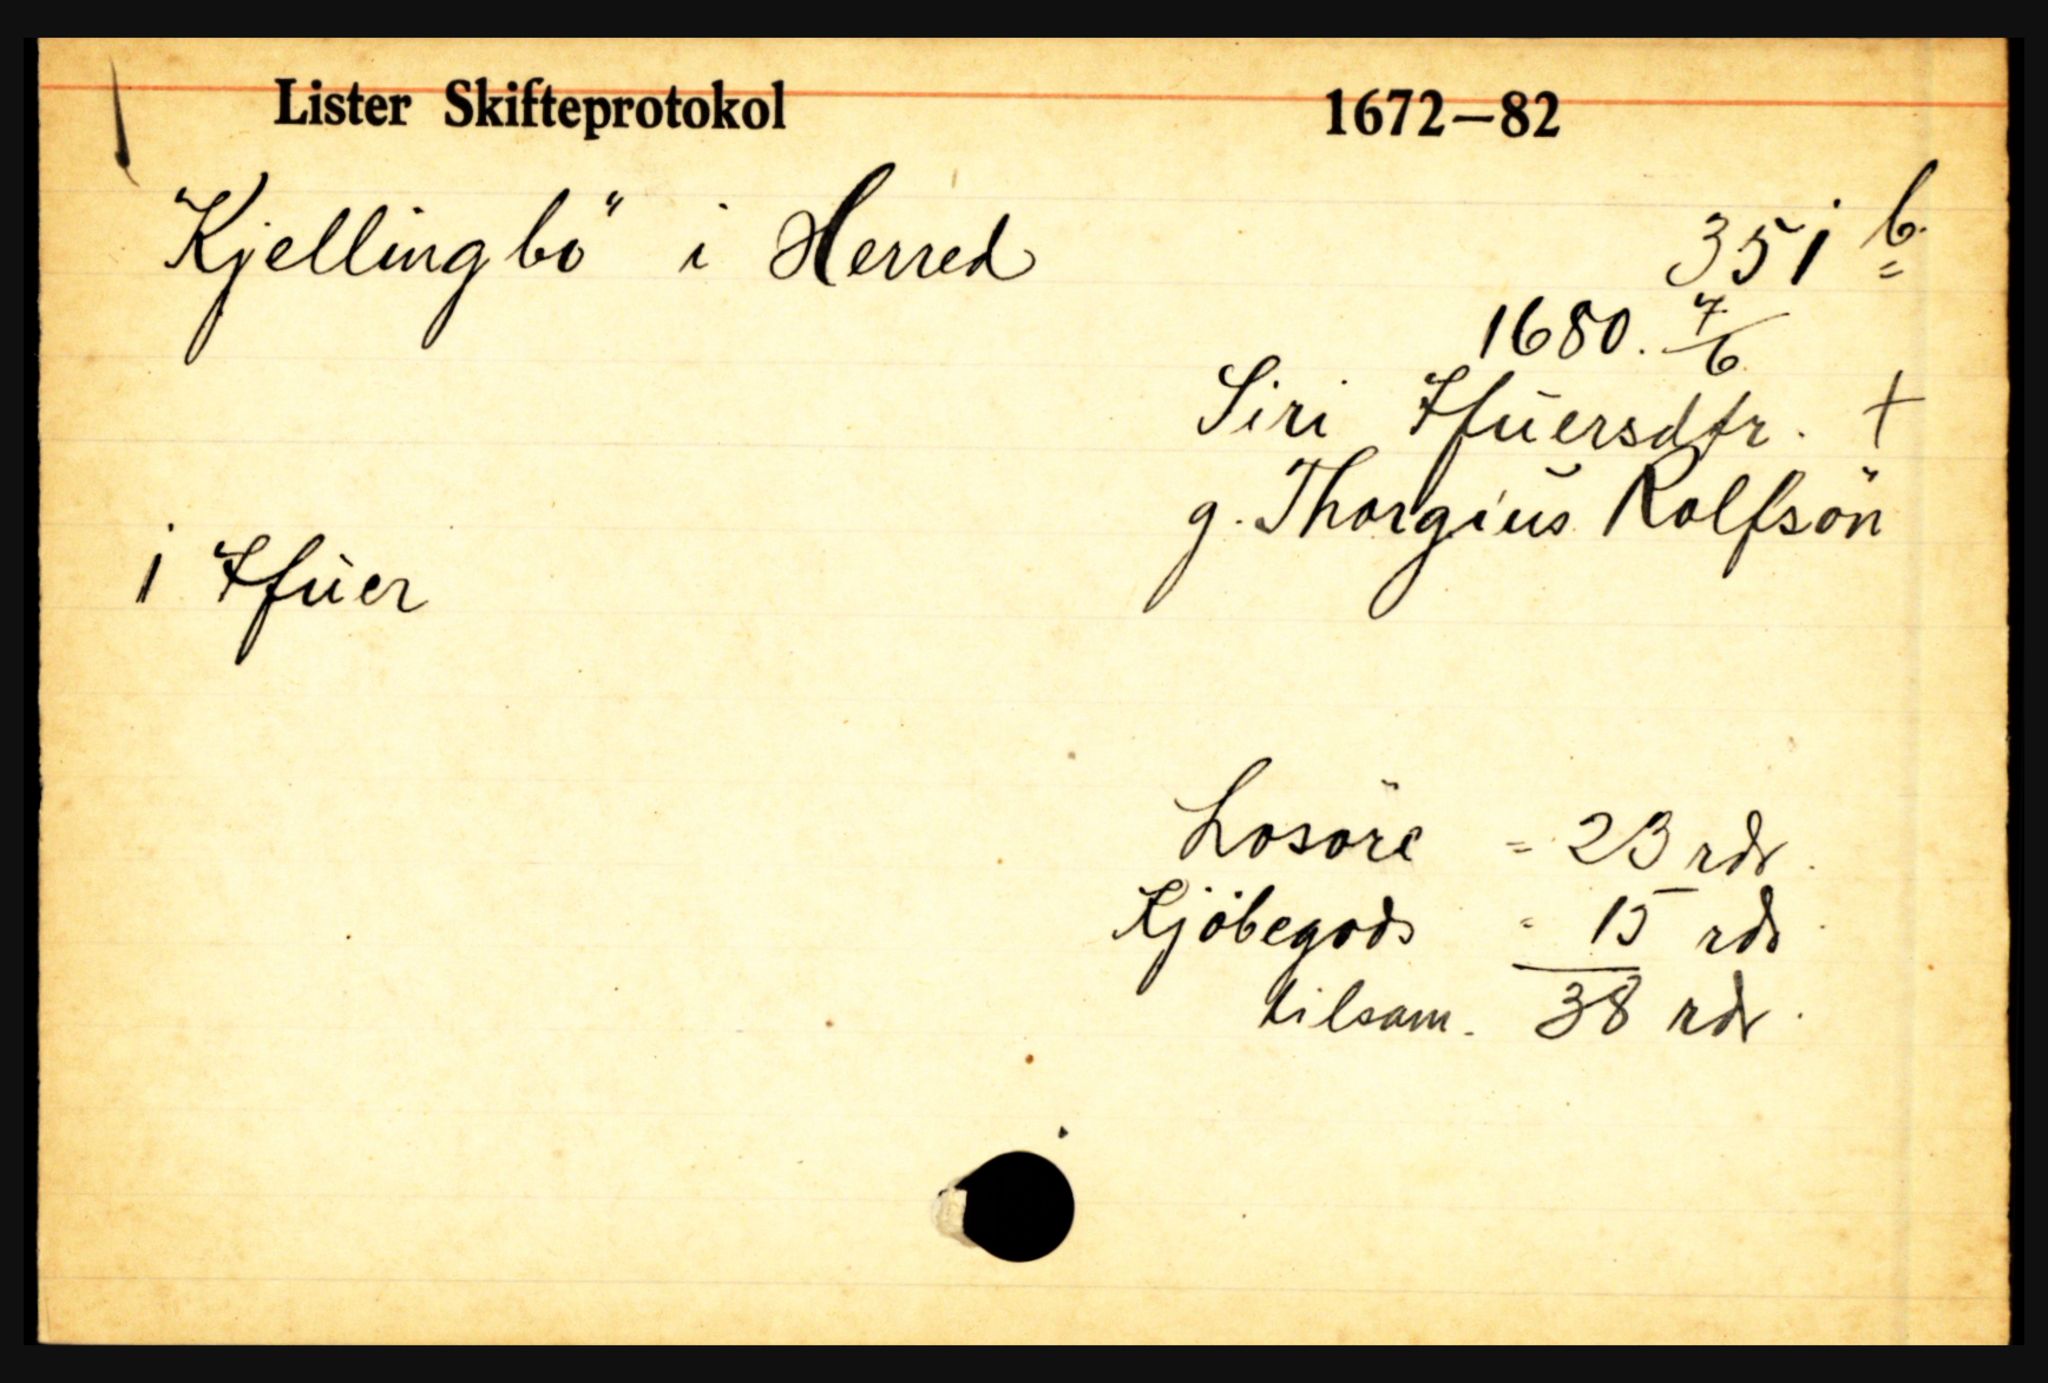 Lister Skifteprotokol 1672—82
Kjellingbö i Herred 351 b.
1680. 7/6
Siri Ifuersdtr. +
g. Thorgius Rolfsön
1 Ifuer
Losöre = 23 rdr.
Kjöbegods - 15 rdr.
tilsam. 38 rdr.